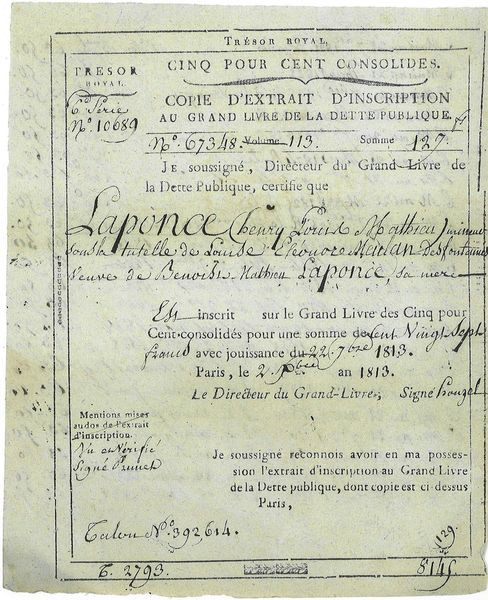 TRÉSOR ROYAL.
TRÉSOR
ROYAL.
6e Série
No. 10689
CINQ POUR CENT CONSOLIDES.
COPIE D'EXTRAIT D'INSCRIPTION
AU GRAND LIVRE DE LA DETTE PUBLIQUE.
No. 67348. Volume 113. Somme 127.
JE soussigné, Directeur du Grand-Livre de
la Dette Publique, certifie que
Laponce (henry Louis Mathieu) mineur
sous la tutelle de Louise Eléonore Meidan Desfontaines
veuve de Benoist Mathieu Laponce, sa mere
Est inscrit sur le Grand Livre des Cinq pour
Cent consolidés pour une somme de Cent Vingt Sept
francs avec jouissance du 22 7bre 1813.
Paris, le 2 an 1813.
Le Directeur du Grand-Livre, Signé
Mentions mises
au dos de l'extrait
d'inscription.
Vu et Vérifié
Signé
Je soussigne reconnois avoir en ma posses-
sion l'extrait d'inscription au Grand Livre
de la Dette publique, dont copie est ci-dessus
Paris,
Talon No. 392614.
129
6. 2793.
8145